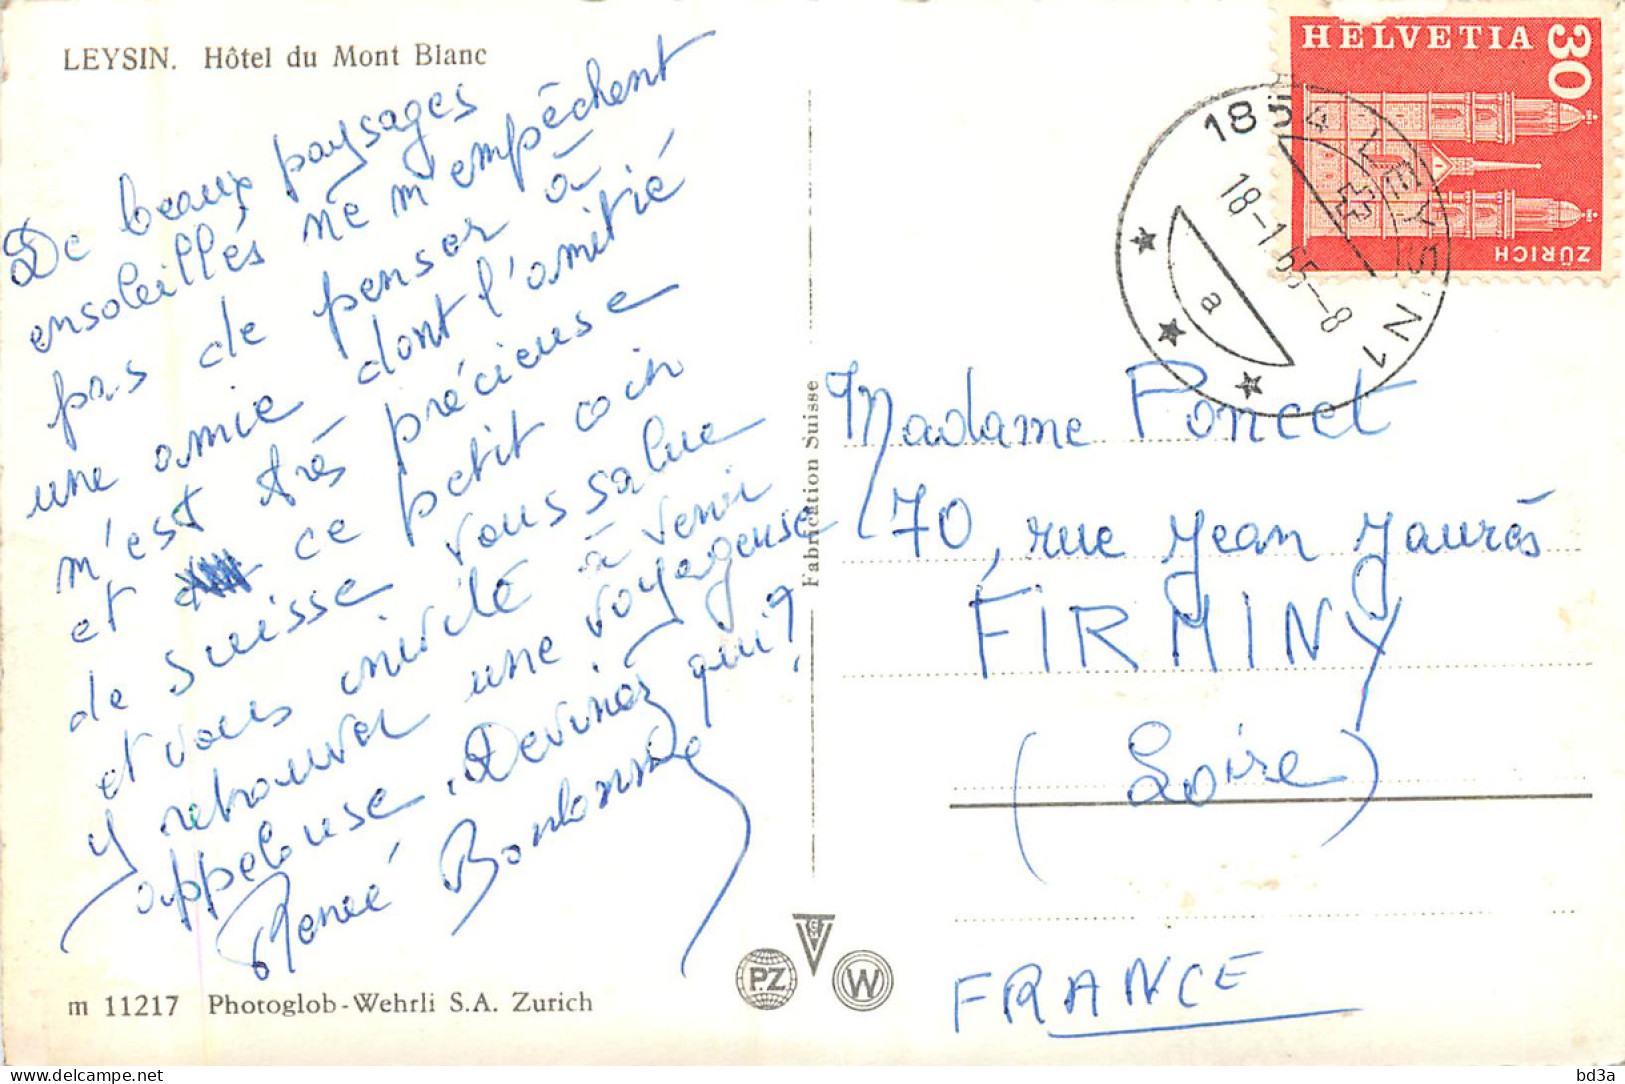 LEYSIN. Hôtel du Mont Blanc
De beaux paysages
ensoleillés ne m'empêchent
pas de penser à
une amie dont l'amitié
m'est très précieuse
et ce petit coin
de Suisse vous salue
et vous invite à venir
y retrouver une voyageuse
appelouse. Devinez qui?
Renée
m 11217 Photoglob-Wehrli S.A. Zurich
Fabrication Suisse
PZ
W
HELVETIA
30
ZÜRICH
1854 LEYSIN 1
18-1.65-8
a
Madame Poncet
70, rue Jean Jaurès
FIRMINY
(Loire)
FRANCE
bd3a